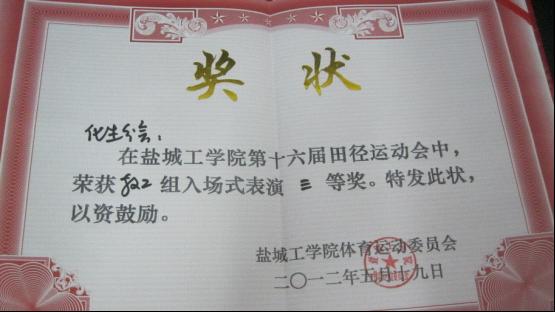 奖 状
化生分会：
在盐城工学院第十六届田径运动会中，
荣获 组入场式表演 三 等奖。特发此状，
以资鼓励。
盐城工学院体育运动委员会
二〇一二年五月十九日